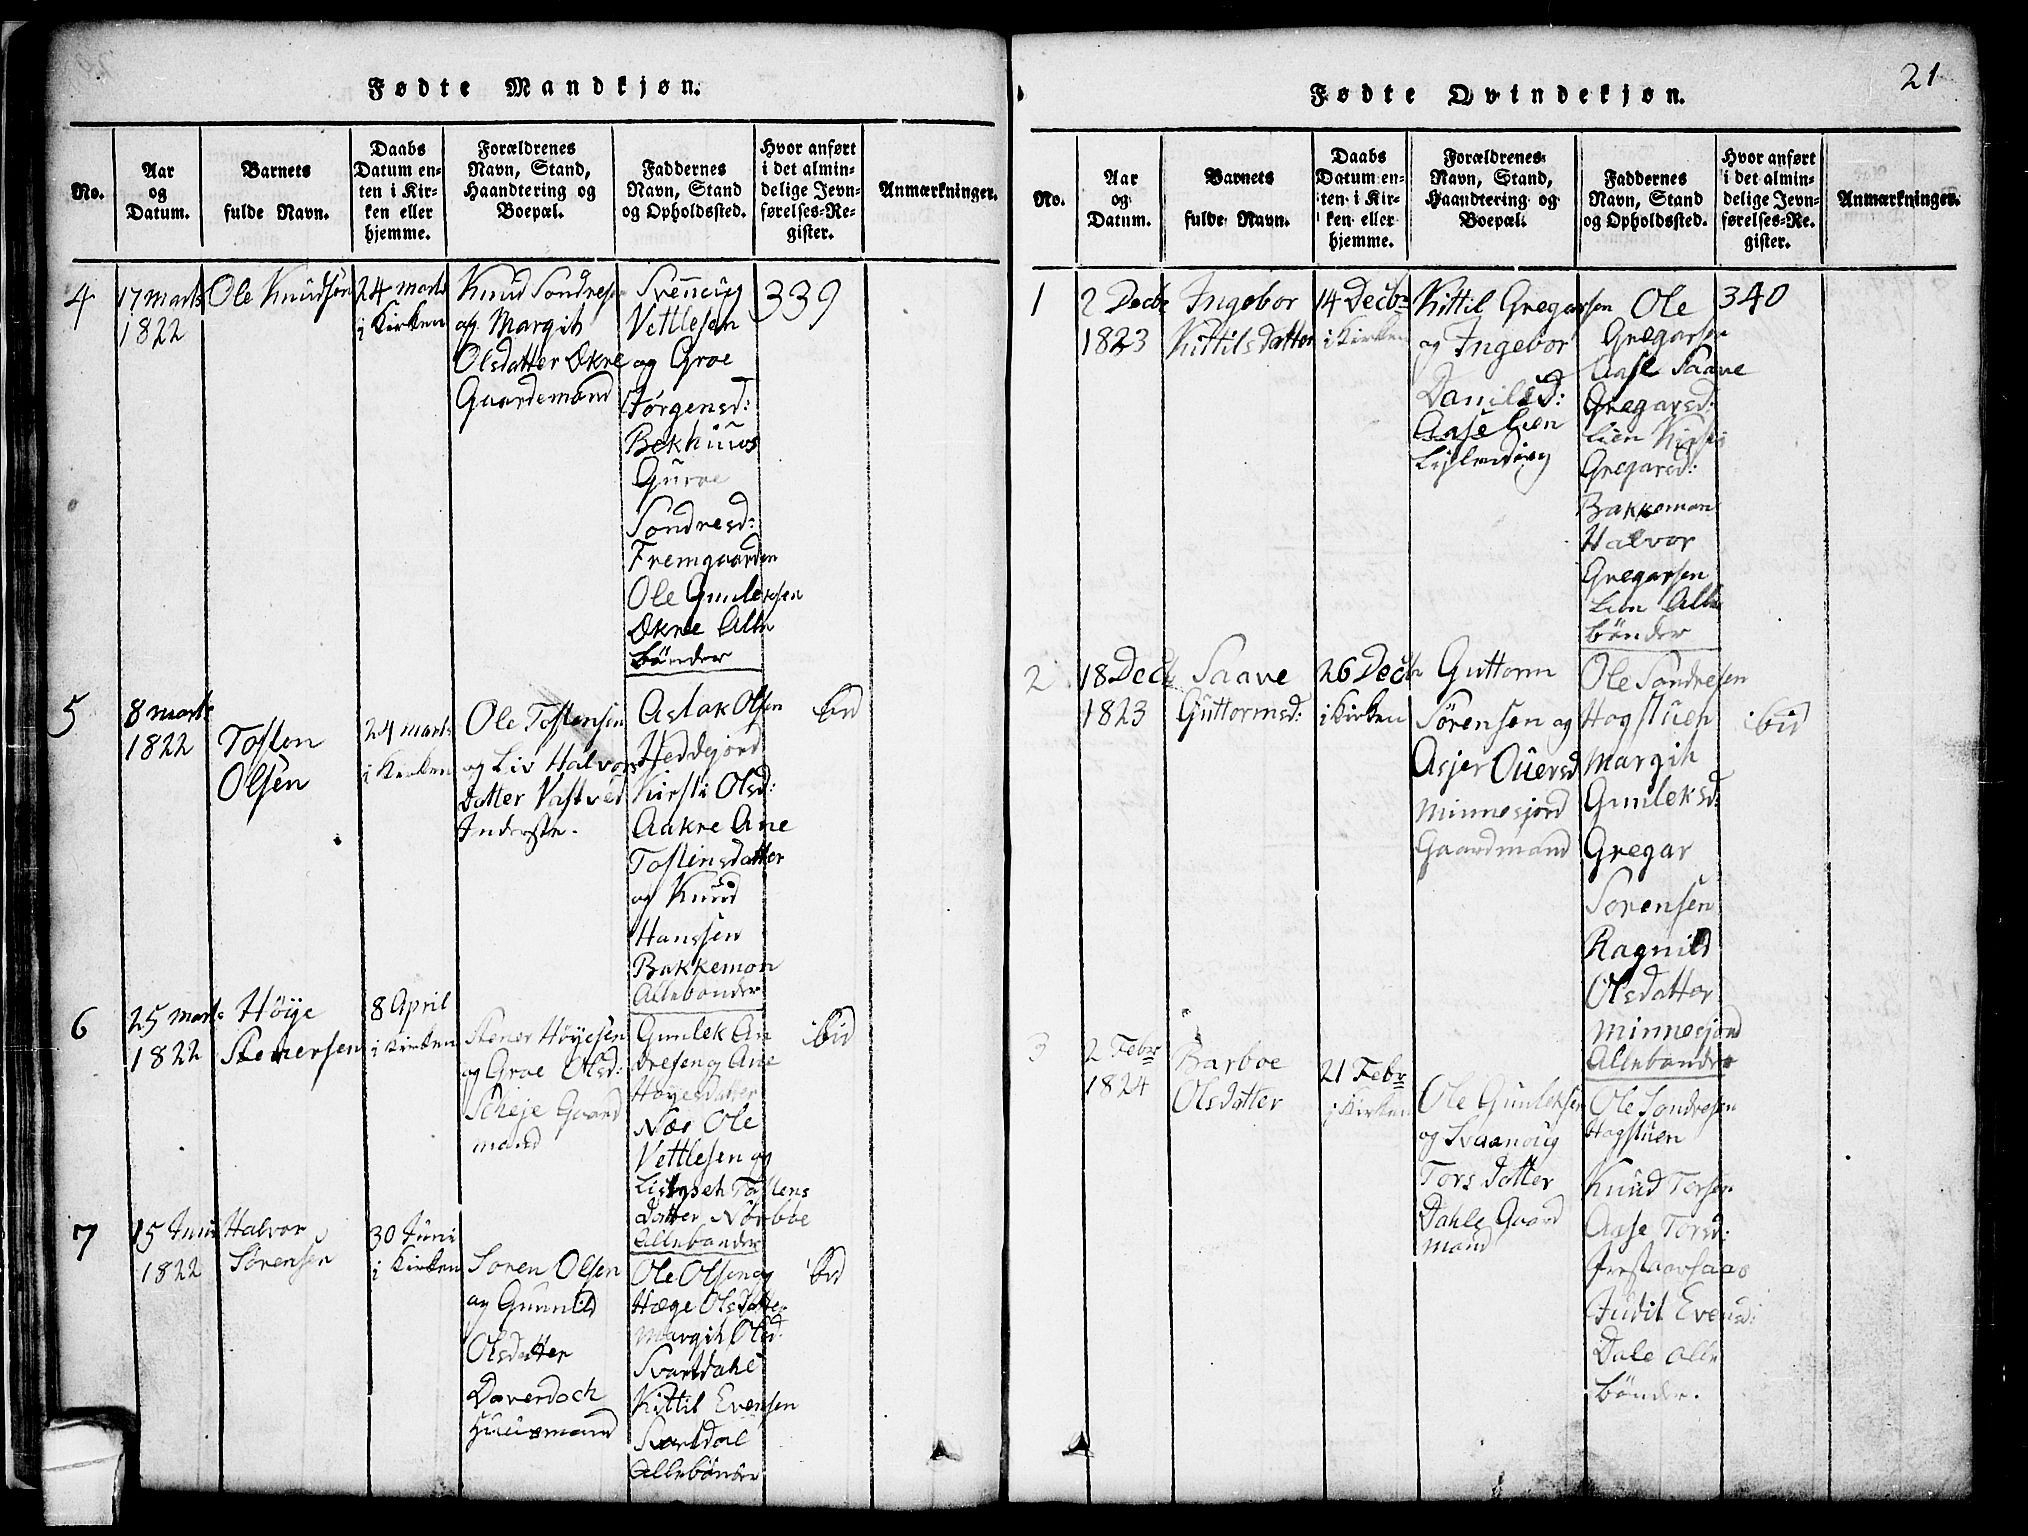 Fødte Mandkjøn.
No.
Aar
og
Datum.
Barnets
fulde Navn.
Daabs
Datum en-
ten i Kir-
ken eller
hjemme.
Forældrenes
Navn, Stand,
Haandtering og
Boepæl.
Faddernes
Navn, Stand
og Opholdssted.
Hvor anført
i det almin-
delige Jevn-
førelses-Re-
gister.
Anmærkninger.
4
17 marts
1822
Ole Knudsen
24 marts
i Kirken
Knud Sondresen
og Margit
Olsdatter Økre
Gaardemand
Svenoug
Vettlesen
og Groe
Jørgensd:
Bekhuus
Guroe
Sondresd:
Fremgaarden
Ole Gunleksen
Økre Alle
bönder
339
5
8 marts
1822
Tosten
Olsen
24 marts
i Kirken
Ole Tostensen
og Liv Halvors
Datter Vastved
Inderste.
Aslak Olsen
Heddejord
Kirsti Olsd:
Aakre Ane
Tostensdatter
og Knud
Hanssen
Bakkeman
Allebonder
ibid
6
25 marts
1822
Höye
Stenersen
8 April
i Kirken
Stener Höyesen
og Groe Olsd:
Scheje Gaard
mand
Gunlek An
dresen og Ane
Höyesdatter
Næs Ole
Vettlesen og
Lisbeth Tostens
Datter Nörboe
Allebonder
ibid
7
15 Juni
1822
Halvor
Sörensen
30 Juni
i Kirken
Soren Olsen
og Gunnild
Olsdatter
Daverdock
Huusmand
Ole Olsen og
Hæge Olsdatter
Margit Olsd:
Svartdahl
Kittil Evensen
Svartdal
Allebönder
ibid
21
Fødte Qvindekjøn.
No.
Aar
og
Datum.
Barnets
fulde Navn.
Daabs
Datum en-
ten i Kir-
ken eller
hjemme.
Forældrenes
Navn, Stand,
Haandtering og
Boepæl.
Faddernes
Navn, Stand
og Opholdssted.
Hvor anført
i det almin-
delige Jevn-
førelses-Re-
gister.
Anmærkninger.
1
2 Decbr
1823
Ingebor
Kittilsdatter
14 Decbr
i Kirken
Kittil Gregarsen
og Ingebor
Danilsd:
Aase Lien
Ole
Gregarsen
Aase Saave
Gregarsd:
Lien Kirsti
Gregarsd:
Bakkeman
Halvor
Gregarsen
Lien Alle
bönder
340
2
18 Decb
1823
Saave
Guttormsd:
26 Decb
i Kirken
Guttorm
Sörensen og
Asjer Ouersd
Minnesjord
Gaardmand
Ole Sondresen
Hogstuen
Margit
Gunleksd:
Gregar
Sorensen
Ragnild
Olsdatter
Minnesjord
Allebonder
ibid
3
2 Febr
1824
Barboe
Olsdatter
21 Febr
i Kirken
Ole Gunleksen
og Svaanoug
Torsdatter
Dahle Gaard
mand
Ole Sondresen
Hogstuen
Knud Torsen
Aase Torsd:
Judit Evensd:
Dale alle
bönder.